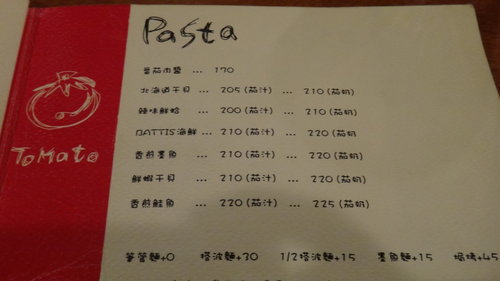 Pasta
番茄肉醬 ... 170
北海道干貝 ... 205 (茄汁) ... 210 (茄奶)
辣味鮮蛤 ... 200 (茄汁) ... 210 (茄奶)
BATTIS海鮮 ... 210 (茄汁) ... 220 (茄奶)
香煎墨魚 ... 210 (茄汁) ... 220 (茄奶)
鮮蝦干貝 ... 210 (茄汁) ... 220 (茄奶)
香煎鮭魚 ... 220 (茄汁) ... 225 (茄奶)
筆管麵+0 塔波麵+30 1/2塔波麵+15 墨魚麵+15 焗烤+45
ToMato